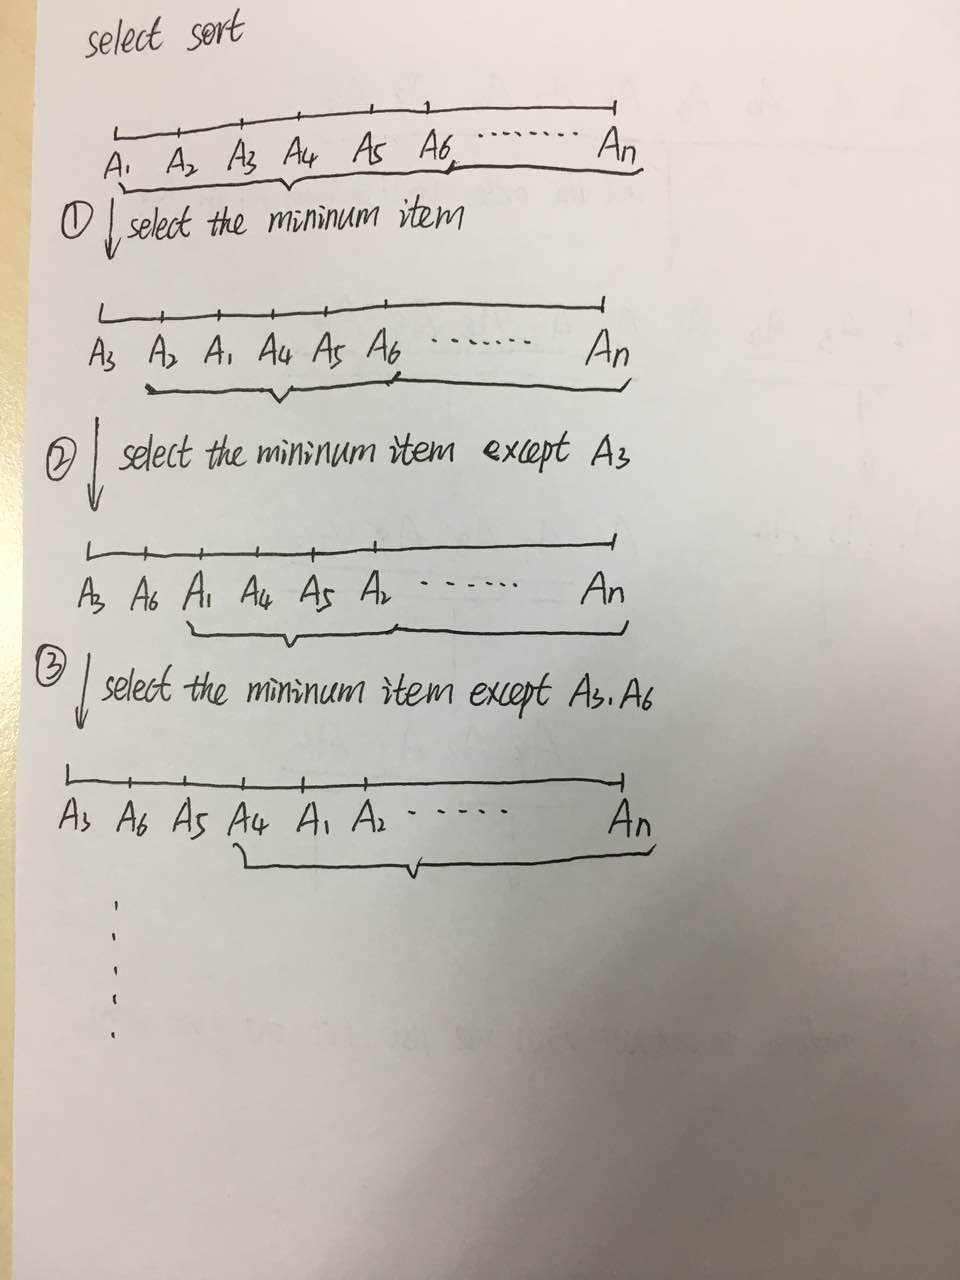 select sort
A1 A2 A3 A4 A5 A6 ........ An
① select the mininum item
A3 A2 A1 A4 A5 A6 ....... An
② select the mininum item except A3
A3 A6 A1 A4 A5 A2 ...... An
③ select the mininum item except A3. A6
A3 A6 A5 A4 A1 A2 ..... An